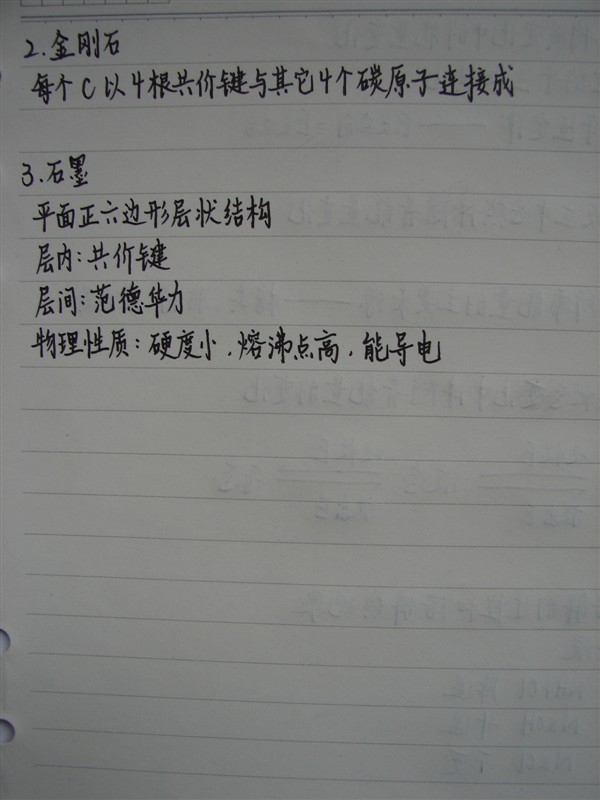 2.金刚石
每个C以4根共价键与其它4个碳原子连接成
3.石墨
平面正六边形层状结构
层内:共价键
层间:范德华力
物理性质:硬度小,熔沸点高,能导电